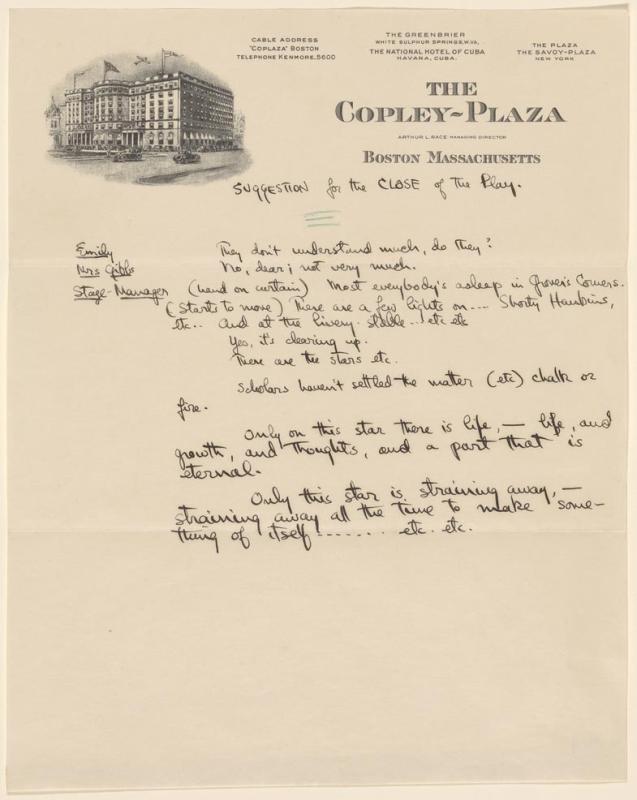 CABLE ADDRESS
"COPLAZA" BOSTON
TELEPHONE KENMORE, 5600
THE GREENBRIER
WHITE SULPHUR SPRINGS, W.VA.
THE NATIONAL HOTEL OF CUBA
HAVANA, CUBA.
THE PLAZA
THE SAVOY-PLAZA
NEW YORK
THE
COPLEY-PLAZA
ARTHUR L. RACE MANAGING DIRECTOR
BOSTON MASSACHUSETTS
SUGGESTION for the CLOSE of the Play.
Emily They don't understand much, do they?
Mrs Gibbs No, dear; not very much.
Stage-Manager (hand on curtain) Most everybody's asleep in Grover's Corners.
(Starts to move) There are a few lights on.... Shorty Hawkins,
etc.. And at the livery-stable... etc etc
Yes, it's clearing up.
There are the stars etc.
Scholars haven't settled the matter (etc) chalk or
fire.
Only on this star there is life, — life, and
growth, and thoughts, and a part that is
eternal.
Only this star is straining away, —
straining away all the time to make some-
thing of itself ....... etc. etc.